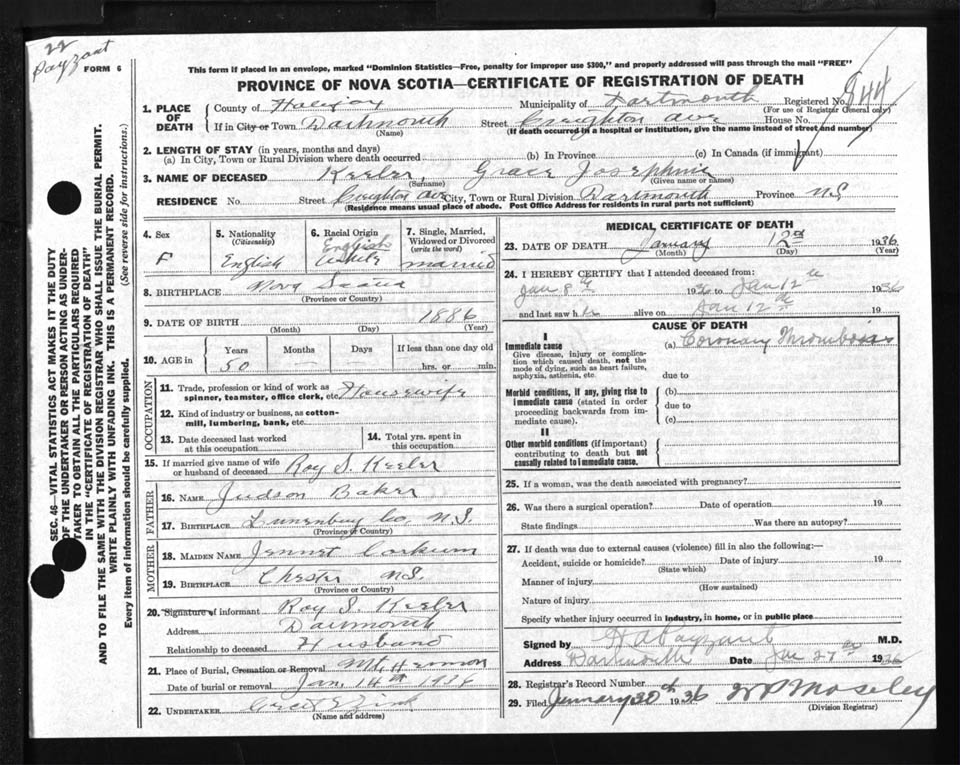 22
Payzant
FORM 6
This form if placed in an envelope, marked "Dominion Statistics—Free, penalty for improper use $300," and properly addressed will pass through the mail "FREE"
PROVINCE OF NOVA SCOTIA—CERTIFICATE OF REGISTRATION OF DEATH
SEC. 46—VITAL STATISTICS ACT MAKES IT THE DUTY
OF THE UNDERTAKER OR PERSON ACTING AS UNDER-
TAKER TO OBTAIN ALL THE PARTICULARS REQUIRED
IN THE "CERTIFICATE OF REGISTRATION OF DEATH"
AND TO FILE THE SAME WITH THE DIVISION REGISTRAR WHO SHALL ISSUE THE BURIAL PERMIT.
WRITE PLAINLY WITH UNFADING INK. THIS IS A PERMANENT RECORD.
Every item of information should be carefully supplied. (See reverse side for instructions.)
1. PLACE OF DEATH County of Halifax Municipality of Dartmouth Registered No. 844
(For use of Registrar General only)
If in City or Town Dartmouth Street Creighton Ave House No.
(Name) (If death occurred in a hospital or institution, give the name instead of street and number)
2. LENGTH OF STAY (in years, months and days)
(a) In City, Town or Rural Division where death occurred (b) In Province (c) In Canada (if immigrant)
3. NAME OF DECEASED Keeler, Grace Josephine
(Surname) (Given name or names)
RESIDENCE No. Street Creighton Ave City, Town or Rural Division Dartmouth Province N.S
(Residence means usual place of abode. Post Office Address for residents in rural parts not sufficient)
4. Sex 5. Nationality (Citizenship) 6. Racial Origin 7. Single, Married, Widowed or Divorced (write the word)
F English English White married
8. BIRTHPLACE Nova Scotia
(Province or Country)
9. DATE OF BIRTH 1886
(Month) (Day) (Year)
10. AGE in Years Months Days If less than one day old
50 hrs. or min.
OCCUPATION
11. Trade, profession or kind of work as spinner, teamster, office clerk, etc. Housewife
12. Kind of industry or business, as cotton-mill, lumbering, bank, etc.
13. Date deceased last worked at this occupation
14. Total yrs. spent in this occupation
15. If married give name of wife or husband of deceased Roy S. Keeler
FATHER
16. NAME Judson Baker
17. BIRTHPLACE Lunenburg Co, N.S.
(Province or Country)
MOTHER
18. MAIDEN NAME Jennet Corkum
19. BIRTHPLACE Chester N.S.
(Province or Country)
20. Signature of informant Roy S. Keeler
Address Dartmouth
Relationship to deceased Husband
21. Place of Burial, Cremation or Removal Mt. Hermon
Date of burial or removal Jan. 14th 1936
22. UNDERTAKER
(Name and address)
MEDICAL CERTIFICATE OF DEATH
23. DATE OF DEATH January 12 1936
(Month) (Day) (Year)
24. I HEREBY CERTIFY that I attended deceased from:
Jan 8th 1936 to Jan 12th 1936
and last saw h alive on Jan 12th 19
CAUSE OF DEATH
I
Immediate cause
Give disease, injury or complication which caused death, not the mode of dying, such as heart failure, asphyxia, asthenia, etc.
(a) Coronary Thrombosis
due to
Morbid conditions, if any, giving rise to immediate cause (stated in order proceeding backwards from immediate cause).
(b)
due to
(c)
II
Other morbid conditions (if important) contributing to death but not causally related to immediate cause.
25. If a woman, was the death associated with pregnancy?
26. Was there a surgical operation? Date of operation 19
State findings Was there an autopsy?
27. If death was due to external causes (violence) fill in also the following:—
Accident, suicide or homicide? Date of injury 19
(State which)
Manner of injury
(How sustained)
Nature of injury
Specify whether injury occurred in industry, in home, or in public place
Signed by H A Payzant M.D.
Address Dartmouth Date Jan 27 1936
28. Registrar's Record Number
29. Filed January 30th 1936 W P Moseley
(Division Registrar)